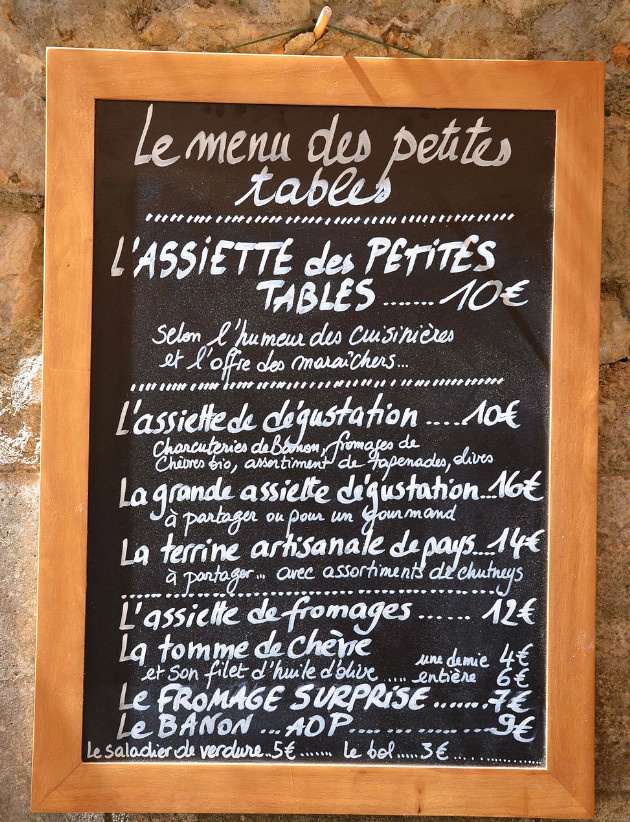 Le menu des petites
tables
L'ASSIETTE des PETITES
TABLES ....... 10€
selon l'humeur des cuisinières
et l'offre des maraîchers...
L'assiette de dégustation .....10€
Charcuteries de Banon, fromages de
Chèvres bio, assortiment de tapenades, olives
La grande assiette dégustation...16€
à partager ou pour un gourmand
La terrine artisanale de pays...14€
à partager... avec assortiments de chutneys
L'assiette de fromages ...... 12€
La tomme de chèvre
et son filet d'huile d'olive .... une demie 4€
entière 6€
Le FROMAGE SURPRISE.......7€
Le BANON ... AOP............9€
le saladier de verdure..5€....... le bol.....3€............